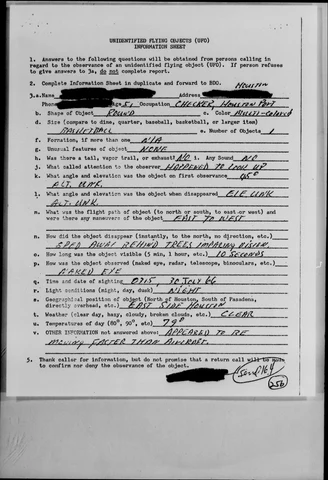 UNIDENTIFIED FLYING OBJECTS (UFO)
INFORMATION SHEET
1. Answers to the following questions will be obtained from persons calling in
regard to the observance of an unidentified flying object (UFO). If person refuses
to give answers to 3a, do not complete report.
2. Complete Information Sheet in duplicate and forward to BDO.
HOUSTON
3.a. Name Address
Phone Age 51 Occupation CHECKER, HOUSTON PORT
b. Shape of Object ROUND c. Color MULTI-COLORED
d. Size (compares to dime, quarter, baseball, basketball, or larger item)
BASKETBALL e. Number of Objects 1
f. Formation, if more than one N/A
g. Unusual features of object NONE
h. Was there a tail, vapor trail, or exhaust NO i. Any Sound NO
j. What called attention to object HAPPENED TO LOOK UP
k. What angle and elevation was the object on first observance 45°
ALT. UNK.
l. What angle and elevation was the object when disappeared ELE UNK
ALT. UNK.
m. What was the flight path of object (to north or south, to east or west) and
were there any maneuvers of the object EAST TO WEST
n. How did the object disappear (instantly, to the north, no direction, etc.)
SPED AWAY BEHIND TREES IMPARING VISION.
o. How long was the object visible (5 min, 1 hour, etc.) 10 SECONDS
p. How was the object observed (naked eye, radar, telescope, binoculars, etc.)
NAKED EYE
q. Time and date of sighting 0215, 30 JULY 66
r. Light conditions (night, day, dusk) NIGHT
s. Geographical position of object (North of Houston, South of Pasadena,
directly overhead, etc.) EAST SIDE HOUSTON
t. Weather (clear day, hazy, cloudy, broken clouds, etc.) CLEAR
u. Temperatures of day (80°, 90°, etc) 79°
v. OTHER INFORMATION not answered above: APPEARED TO BE
MOVING FASTER THAN AIRCRAFT.
5. Thank caller for information, but do not promise that a return call will be made
to confirm nor deny the observance of the object.
send 164
256